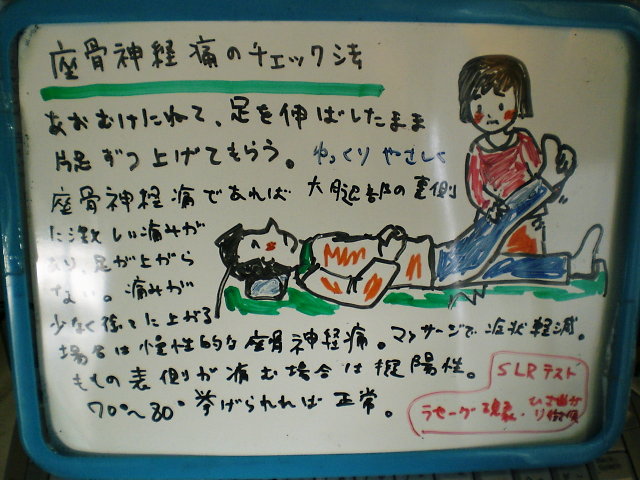 座骨神経痛のチェック法
あおむけにねて、足を伸ばしたまま
片足ずつ上げてもらう。ゆっくりやさしく
座骨神経痛であれば 大腿部の裏側
に激しい痛みが
あり、足が上がら
ない。痛みが
少なく徐々に上がる
場合は慢性的な座骨神経痛。マッサージで症状軽減。
ももの表側が痛む場合は擬陽性。
70°〜80°挙げられれば正常。
SLRテスト
ラセーグ